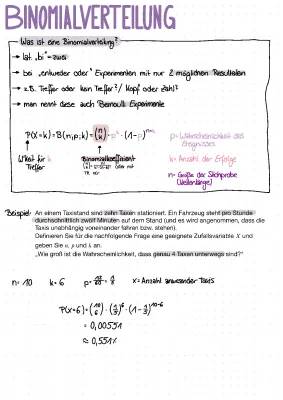 BINOMIALVERTEILUNG
Was ist eine Binomialverteilung?
→ lat. „bi"=zwei
→ bei „entweder oder" Experimenten mit nur 2 möglichen Resultaten
→ z.B. Treffer oder kein Treffer?/ Kopf oder Zahl?
→ man nennt diese auch Bernoulli Experimente
P(X=k)=B(n;p;k)=(n k)·p^k·(1-p)^n-k
p= Wahrscheinlichkeit des Ereignisses
k= Anzahl der Erfolge
n= Größe der Stichprobe
für k Treffer
Binomialkoeffizient
Beispiel: An einem Taxistand sind zehn Taxen stationiert. Ein Fahrzeug steht pro Stunde
durchschnittlich zwölf Minuten auf dem Stand (und es wird angenommen, dass die
Taxis unabhängig voneinander fahren bzw. stehen).
Definieren Sie für die nachfolgende Frage eine geeignete Zufallsvariable X und
geben Sie n, p und k an.
„Wie groß ist die Wahrscheinlichkeit, dass genau 4 Taxen unterwegs sind?"
n= 10 k= 6 p= 12/60 = 1/5 X= Anzahl anwesender Taxis
P(X=6)=(10 6)·(1/5)^6·(1-1/5)^10-6
= 0,00551
≈ 0,551%